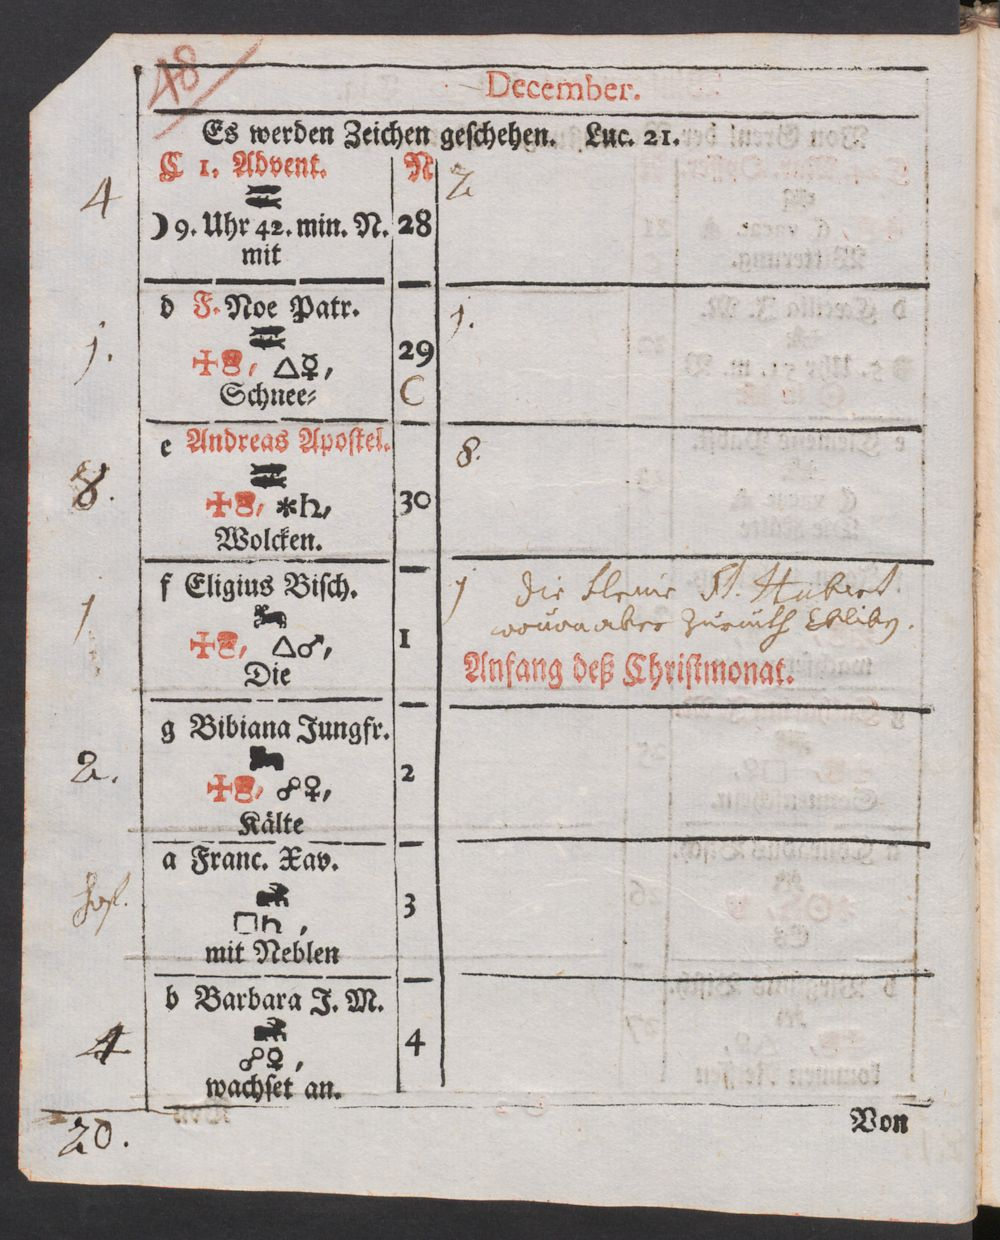 48
December.
Es werden Zeichen geschehen. Luc. 21.
C 1. Advent. N 2
4
☽ 9. Uhr 42. min. N. 28
mit
d F. Noe Patr.
1. 29 1.
△☿, C
Schnee-
e Andreas Apostel.
8. 8.
✱♄, 30
Wolcken.
f Eligius Bisch.
1 1 die kleine St. Hubert
△♂, 1
Die Anfang deß Christmonat.
g Bibiana Jungfr.
2. 2
☍♀,
Kälte
a Franc. Xav.
3
□♄,
mit Neblen
b Barbara J. M.
4 4
☍♀,
wachset an.
20. Von